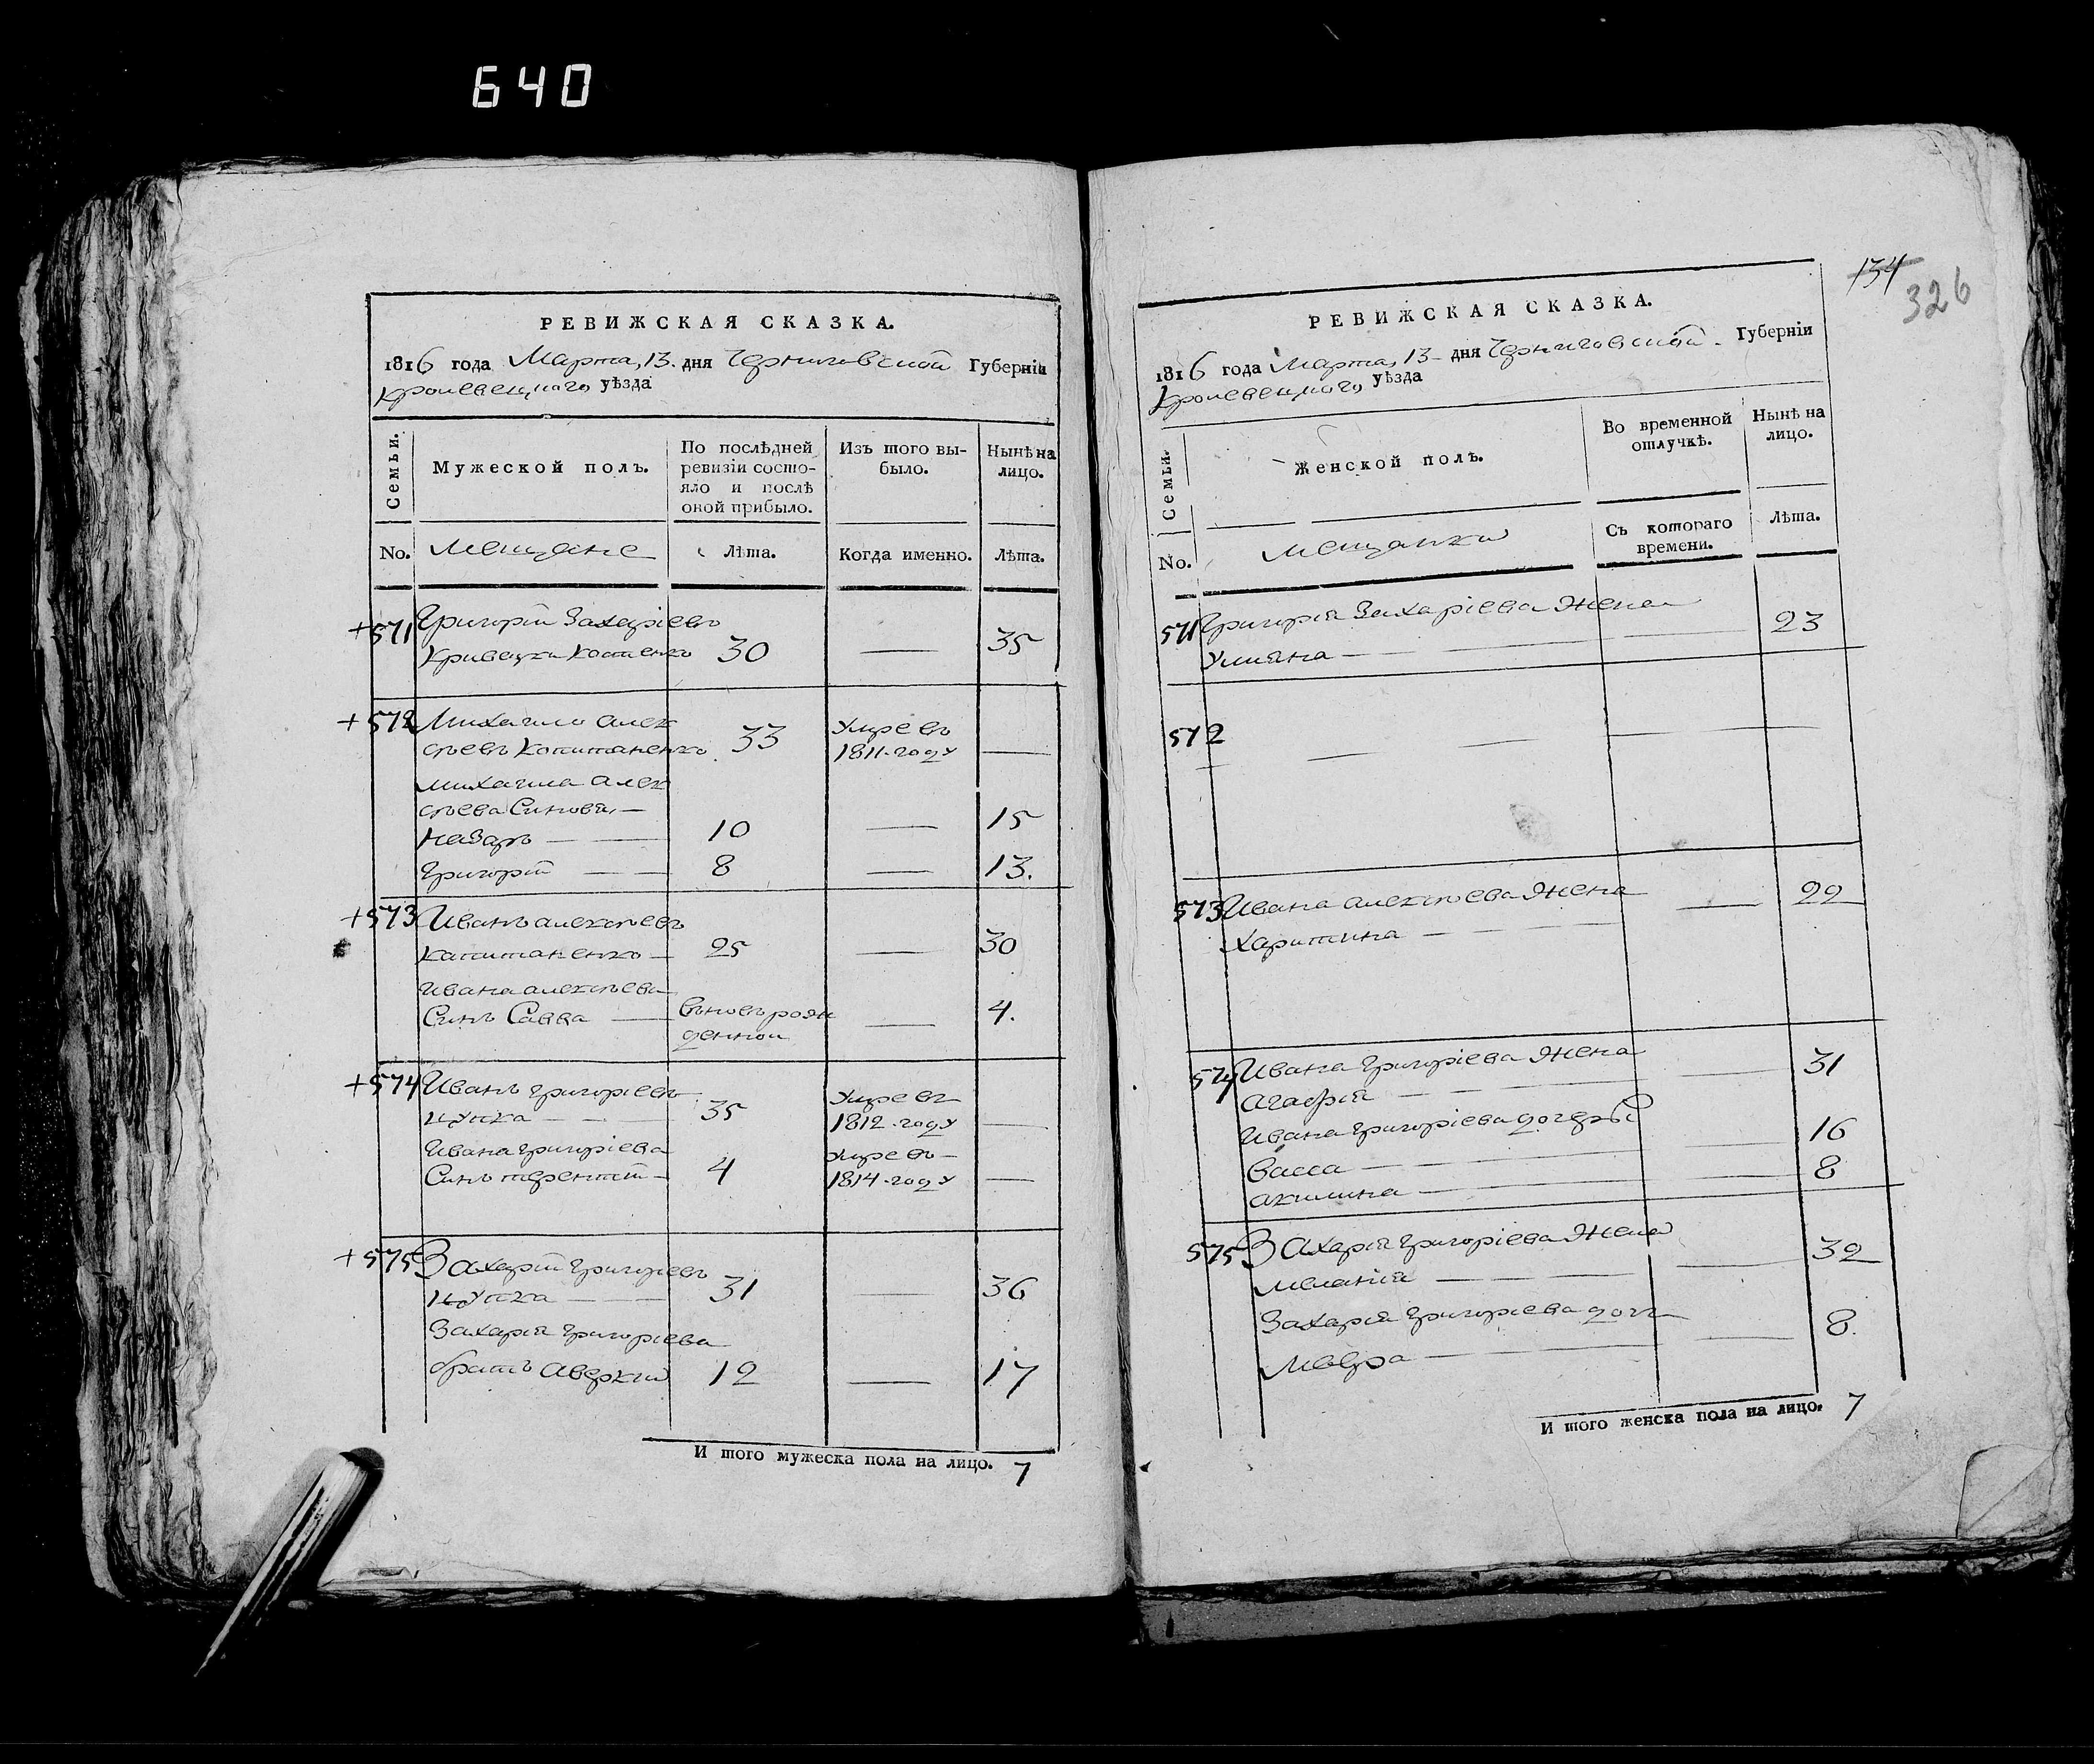 640
РЕВИЖСКАЯ СКАЗКА.
1816 года Марта, 13. дня Черниговской Губерніи
Кролевецкого уѣзда
Семьи.
Мужеской полъ.
По послѣдней
ревизіи состо-
яло и послѣ
оной прибыло.
Изъ того вы-
было.
Нынѣ на
лицо.
No.
Мещане
Лѣта.
Когда именно.
Лѣта.
+571 Григорій Захаріевъ
30 — 35
+572 Михайло Алек
сѣевъ Капитаненко 33 Умре въ
1811-году —
Михайла Алек
сѣева Синовя, —
Назаръ — 10 — 15
Григорій — — 8 — 13.
+573 Иванъ Алексѣевъ
Капитаненко — 25 — 30
Ивана Алексѣева
Синъ Савва — вновь рож
денной — 4.
+574 Иванъ Григоріевъ
35 Умре въ
1812-году —
Ивана Григоріева
Синъ Терентій — 4 Умре въ —
1814-году —
+575 Захарій Григоріевъ
31 — 36
Захарія Григоріева
братъ Аверкій 12 — 17
И того мужеска пола на лицо. 7
134
326
РЕВИЖСКАЯ СКАЗКА.
1816 года Марта, 13 - дня Черниговской - Губерніи
Кролевецкого, уѣзда
Семьи.
Женской полъ.
Во временной
отлучкѣ.
Нынѣ на
лицо.
No.
Мещанки
Съ котораго
времени.
Лѣта.
571 Григорія Захаріева Жена
Уліяна — — — 23
572 — — —
573 Ивана Алексѣева Жена
Харитина — — — — 22
574 Ивана Григоріева Жена
Агафія — — — 31
Ивана Григоріева дочери
Васса — — — 16
Акилина — — 8
575 Захарія Григоріева Жена
Меланія — — — 32
Захарія Григоріева дочь
Мавра — — 8.
И того женска пола на лицо. 7